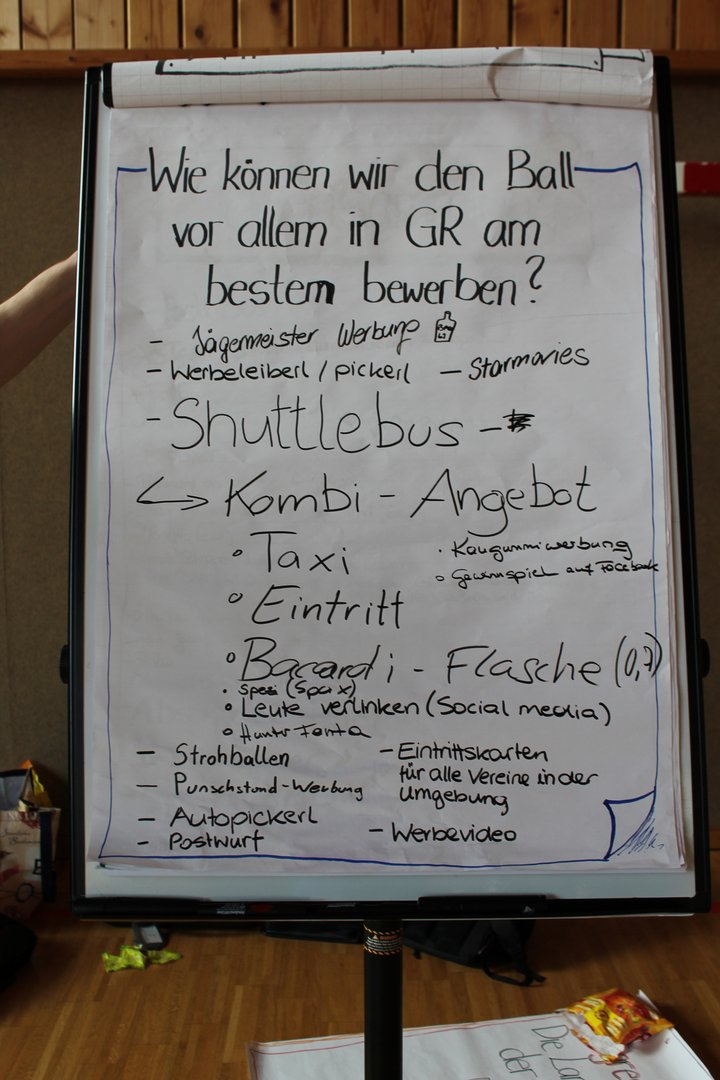 Wie können wir den Ball
vor allem in GR am
bestem bewerben?
- Jägermeister Werbung
- Werbeleiberl / pickerl - Starmovies
- Shuttlebus -
↪ Kombi - Angebot
• Taxi
• Kaugummiwerbung
• Gewinnspiel auf Facebook
• Eintritt
• Bacardi - Flasche (0,7)
• Spezi (Spax)
• Leute verlinken (Social media)
- Strohballen
- Punschstand-Werbung
- Autopickerl
- Postwurf
- Eintrittskarten
für alle Vereine in der
Umgebung
- Werbevideo
Die
der